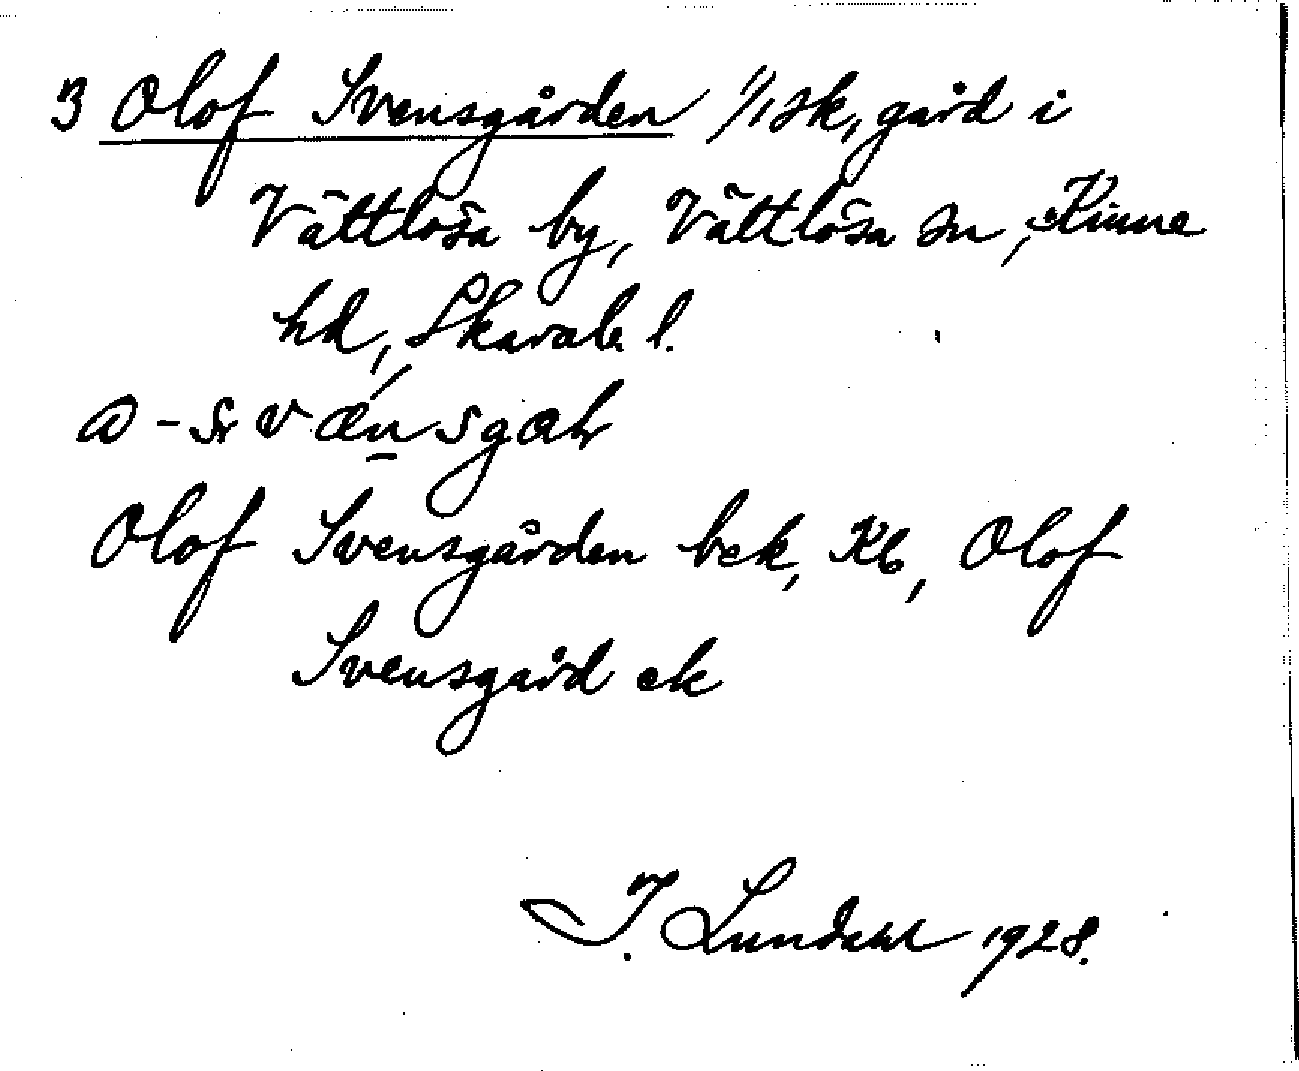 3 Olof Svensgården 1/1 sk, gård i
Vättlösa by, Vättlösa sn, Kinne
hd, Skarab. l.
Olof Svensgården bek, Kb, Olof
Svensgård ek
I. Lundahl 1928.